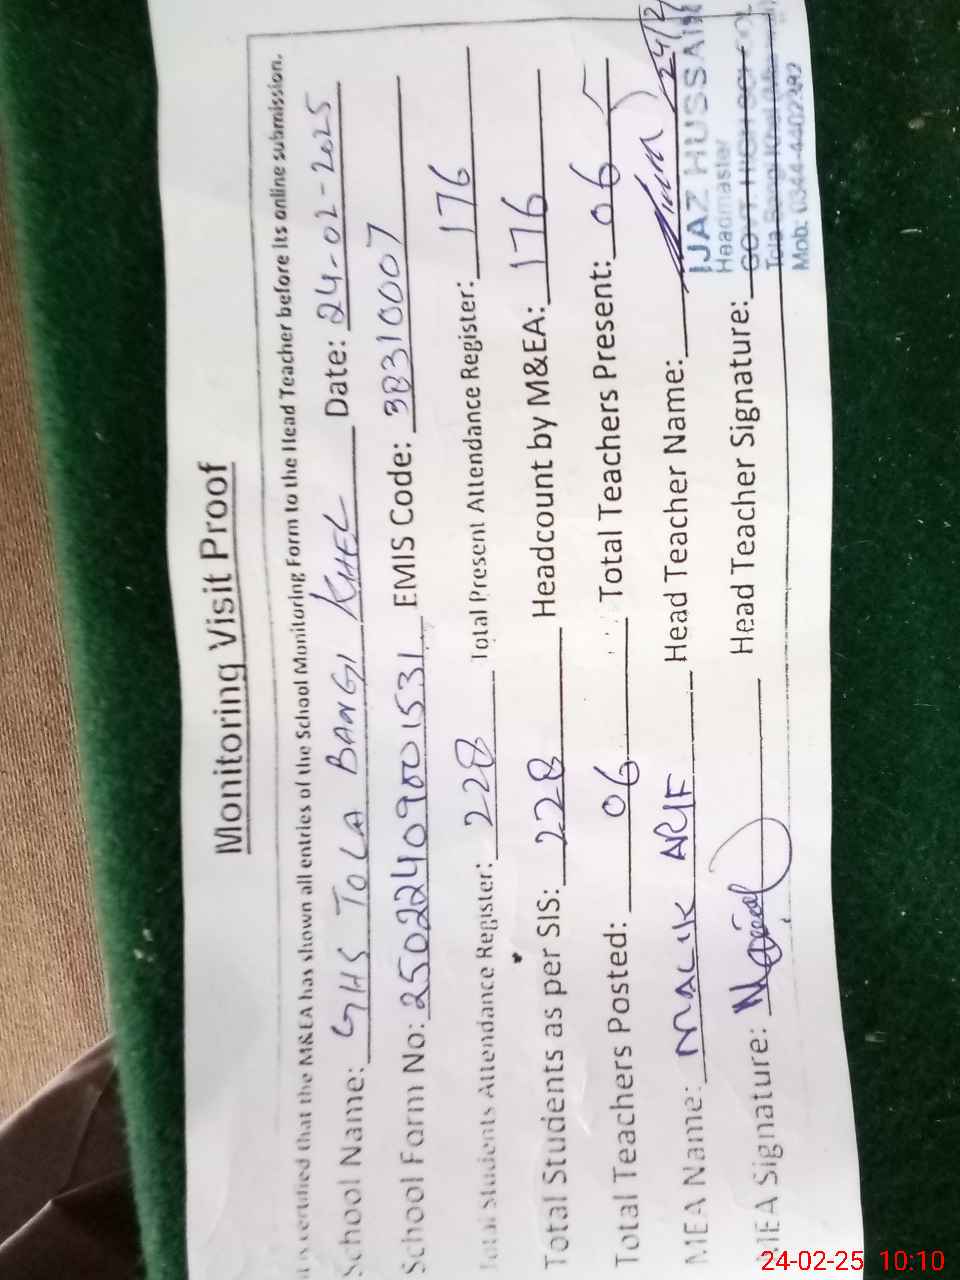 Monitoring Visit Proof
It is certified that the M&EA has shown all entries of the School Monitoring Form to the Head Teacher before its online submission.
School Name: GHS TOLA BANGI KHEL Date: 24-02-2025
School Form No: 25022409001531 EMIS Code: 38310007
Total Students Attendance Register: 228 Total Present Attendance Register: 176
Total Students as per SIS: 228 Headcount by M&EA: 176
Total Teachers Posted: 06 Total Teachers Present: 06
MEA Name: MALIK ARIF Head Teacher Name:
MEA Signature: Head Teacher Signature:
24/2/
IJAZ HUSSAIN
Headmaster
GOVT. HIGH SCHOOL
Tola Bangi Khel
Mob: 0344-4402392
24-02-25 10:10